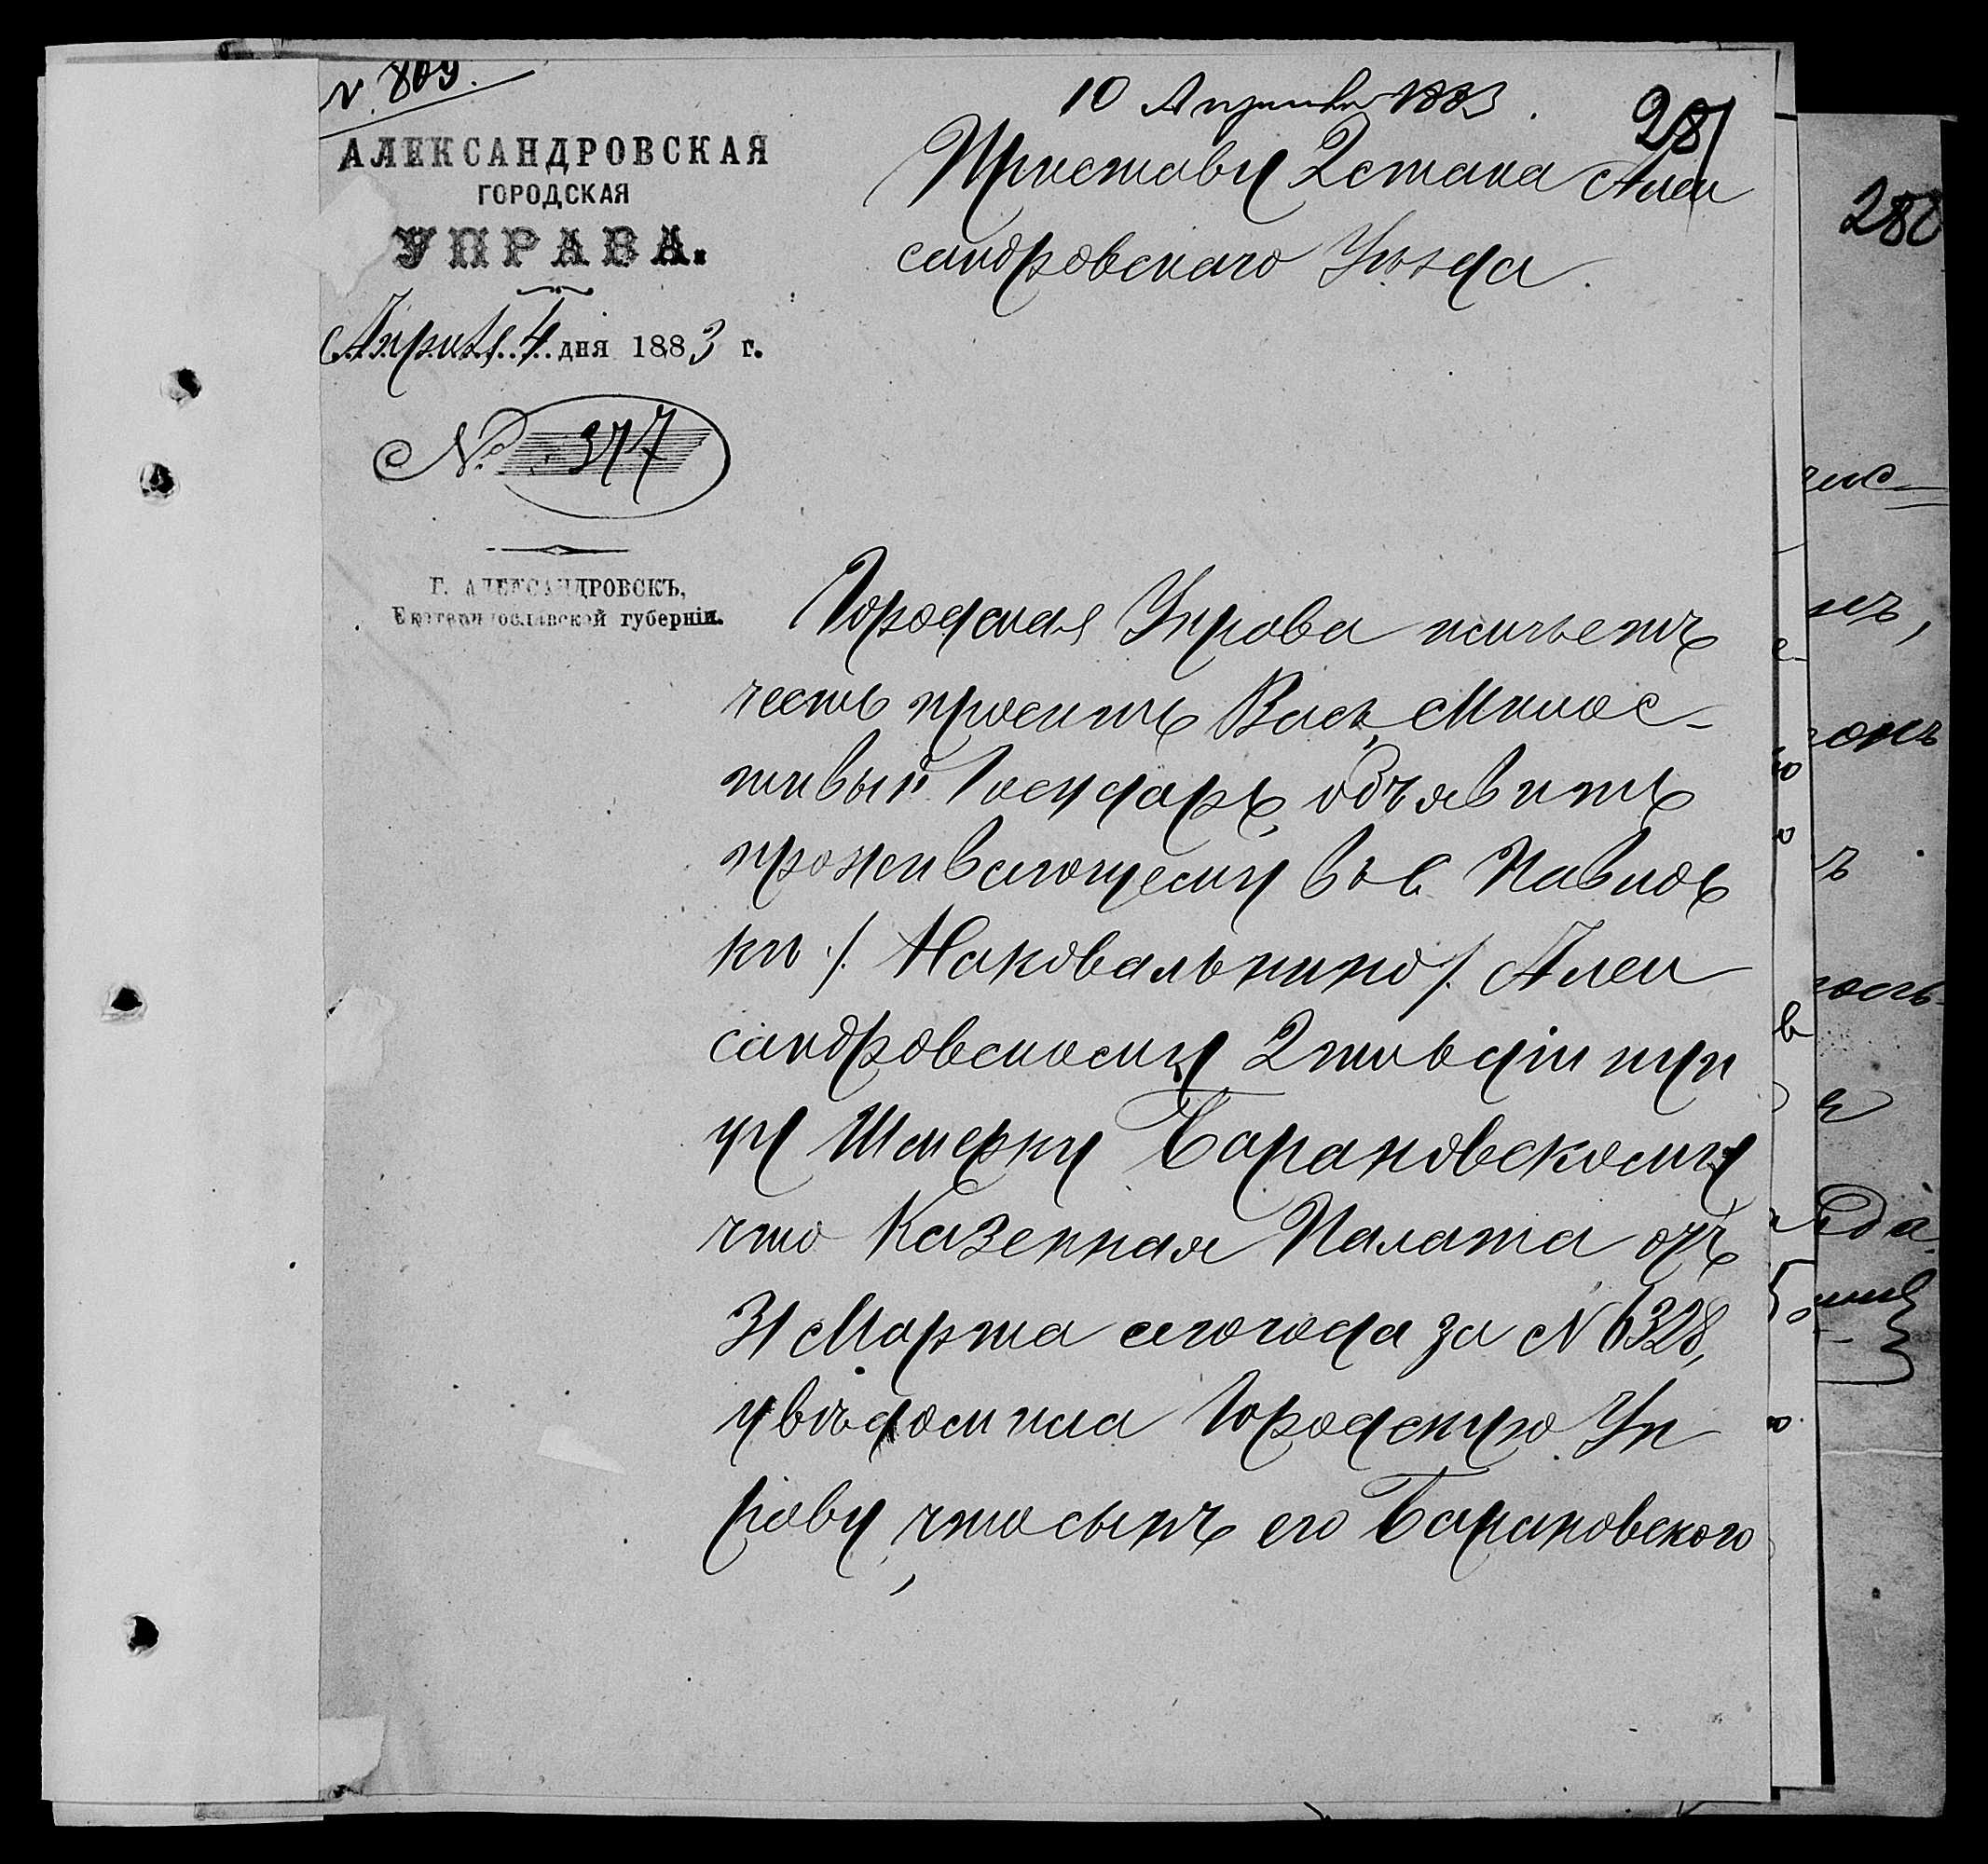 N. 809.
10 Апреля 1883.
281
АЛЕКСАНДРОВСКАЯ
ГОРОДСКАЯ
УПРАВА.
Апреля 4 дня 1883 г.
№ 377
Г. АЛЕКСАНДРОВСКЪ,
Екатеринославской губерніи.
Приставу 2 стана Алек
сандровскаго Уѣзда.
Городская Управа имѣетъ
честь просить Васъ, Милос-
тивый Государь, объявить
проживающему въ с. Павлов
кѣ /. Наковальнино /. Алек
сандровскому 2 гильдіи куп
цу Шмерку Барановскому
что Казенная Палата отъ
31 Марта сего года за N 6328,
увѣдомила Городскую Уп
раву, что сынъ его Барановского
280